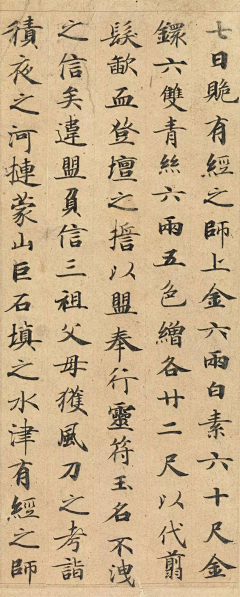 七日賝有經之師上金六兩白素六十尺金
鐶六雙青絲六兩五色繒各廿二尺以代翦
髮歃血登壇之擔以盟奉行靈符玉名不洩
之信矣違盟負信三祖父母獲風刀之考詣
積夜之河揵蒙山巨石填之水津有經之師